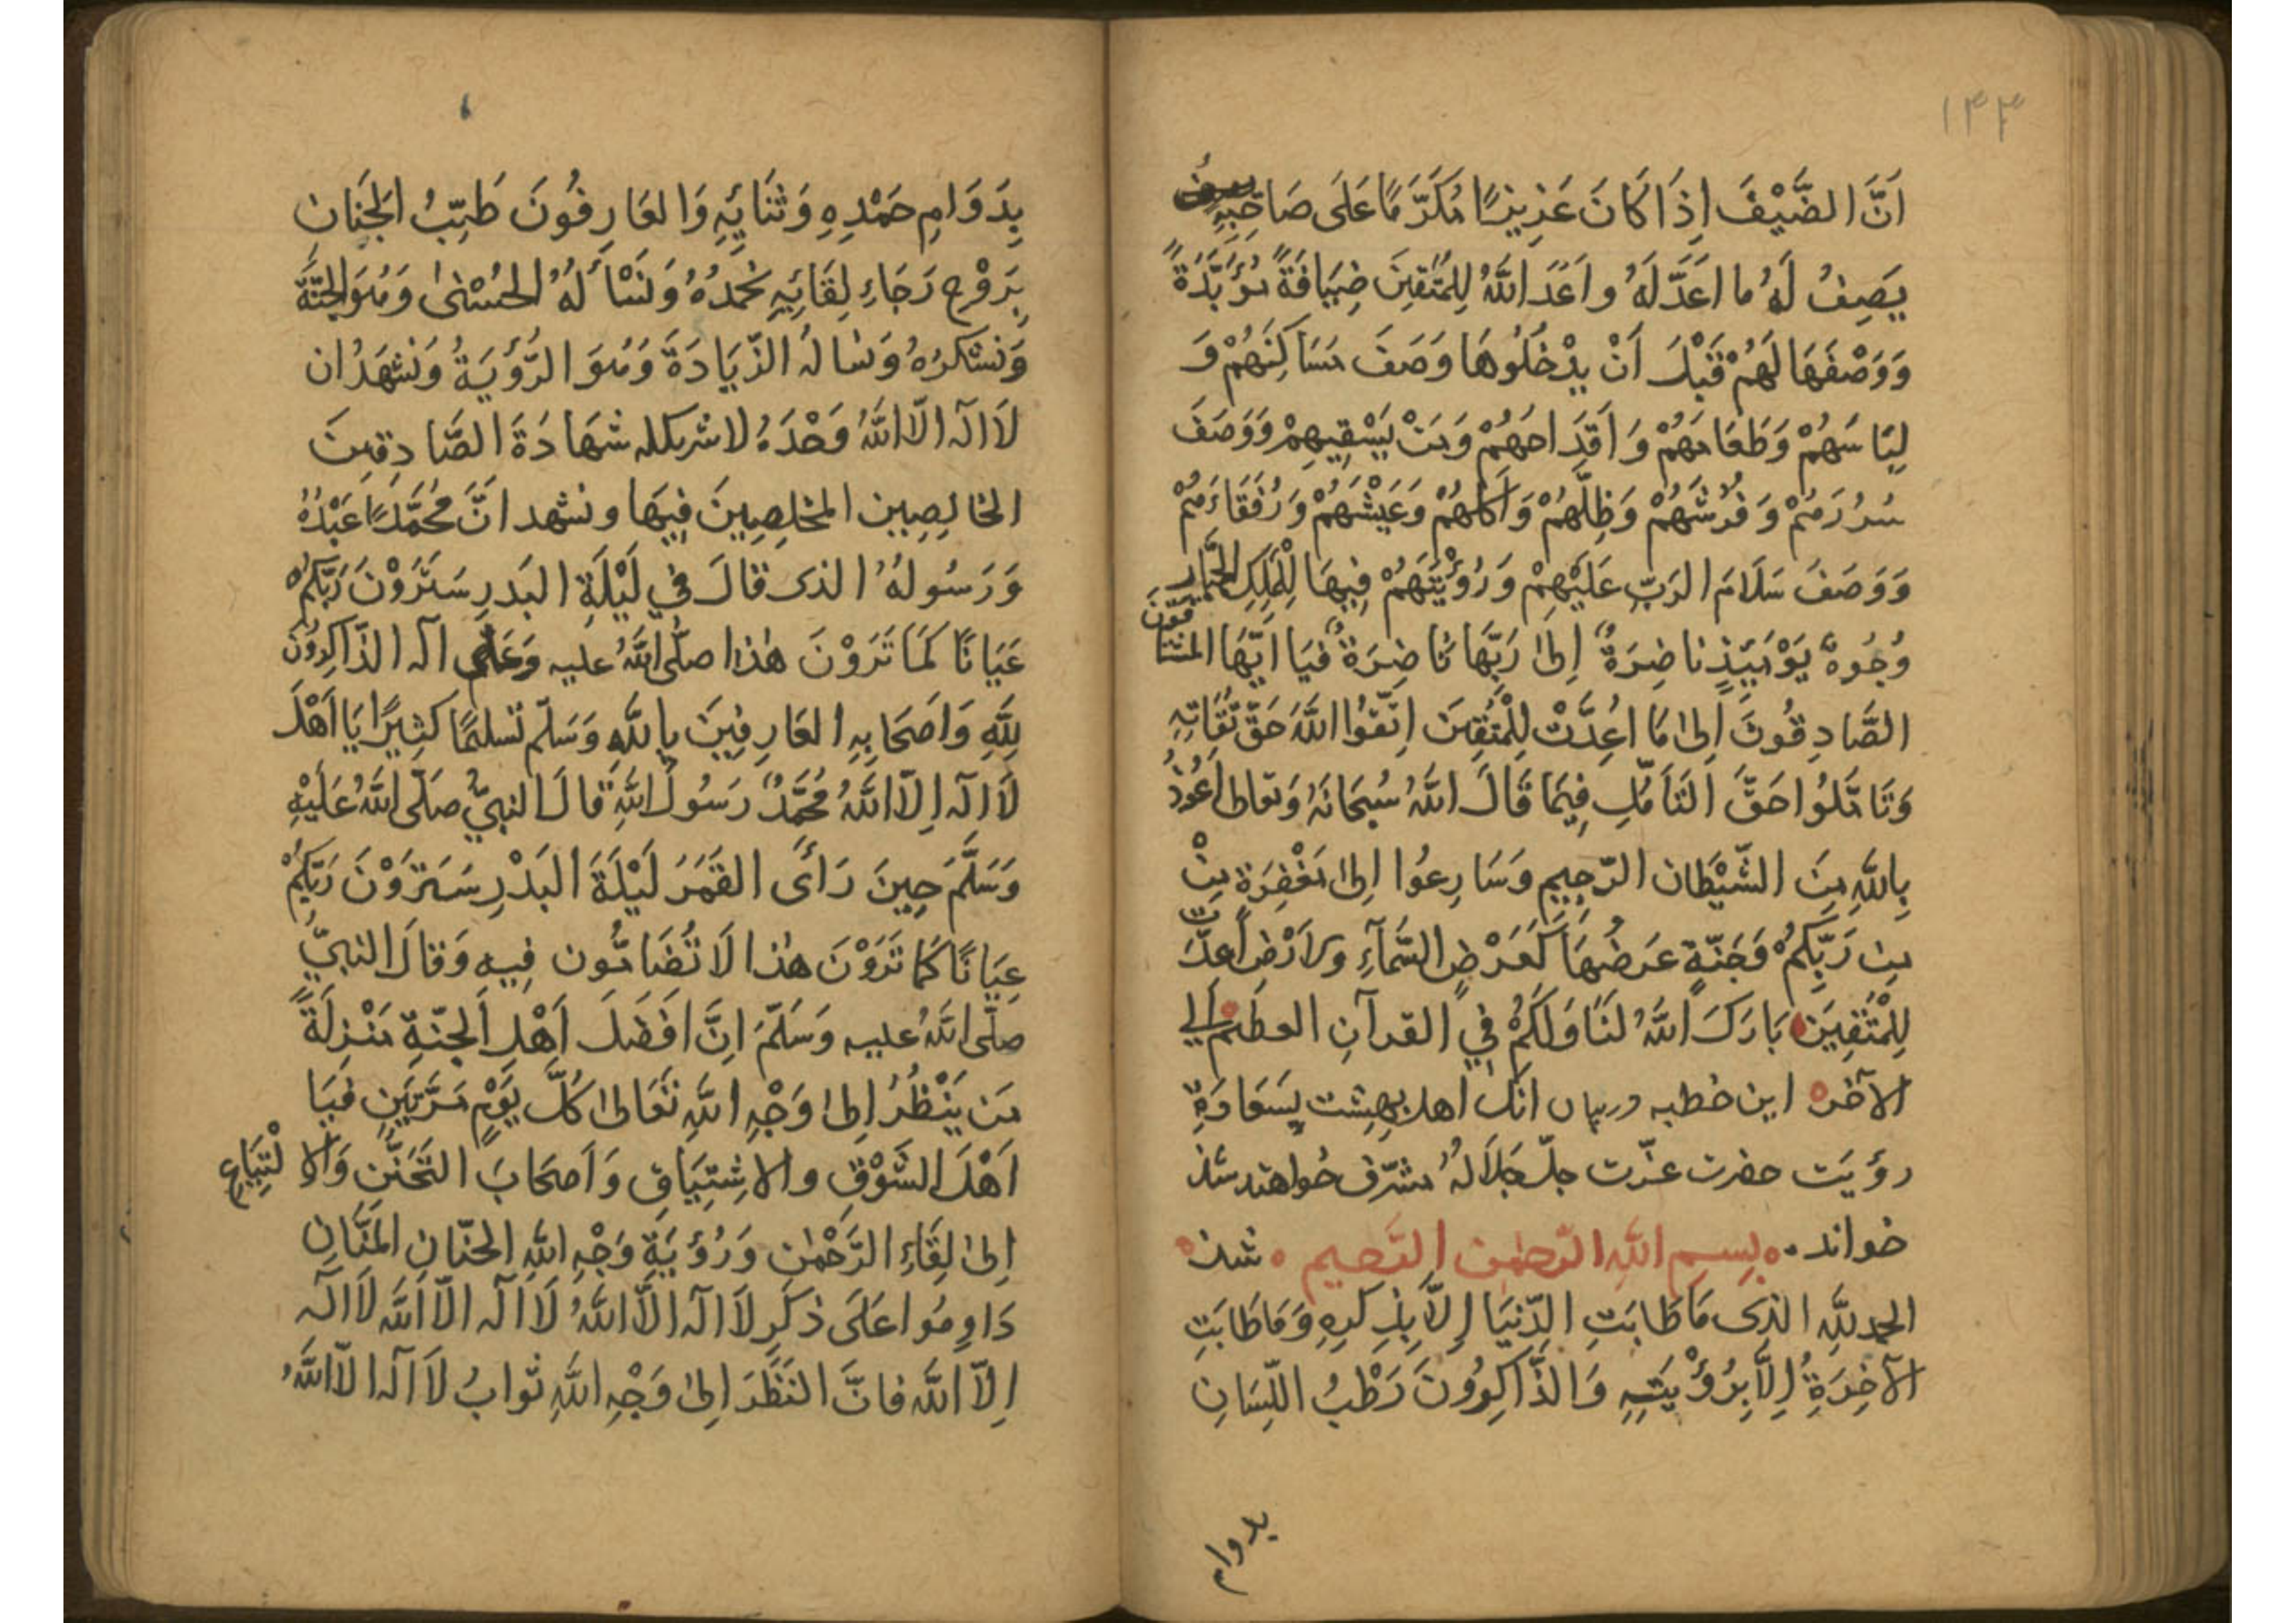 ۱۳۳
اَنَّ الضَّيْفَ اِذَا كَانَ عَزِيزًا مُكَرَّمًا عَلَى صَاحِبِهِ
يَصِفُ لَهُ ما اَعَدَّ لَهُ و اَعَدَّ اللّٰهُ لِلْمُتَّقِينَ ضِيَافَةً مُؤَبَّدَةً
وَوَصْفَهَا لَهُمْ قَبْلَ اَنْ يَدْخُلُوهَا وَصَفَ مَسَاكِنَهُمْ وَ
لِبَاسَهُمْ وَطَعَامَهُمْ وَ اَقْدَاحَهُمْ وَمَنْ يَسْقِيهِمْ وَوَصَفَ
سُرُرَهُمْ وَ فُرُشَهُمْ وَظِلَّهُمْ وَاُكُلَهُمْ وَعَيْشَهُمْ وَرُفَقَاءَهُمْ
وَوَصَفَ سَلَامَ الرَبِّ عَلَيْهِمْ وَرُؤْيَتَهُمْ فِيهَا لِلْمَلِكِ الجَبَّارِ
وُجُوهٌ يَوْمَئِذٍ ناضِرَةٌ اِلىٰ رَبِّهَا نَاضِرَةٌ فَيَا اَيُّهَا المُشتاقُونَ
الصَّادِقُونَ اِلىٰ مَا اُعِدَّتْ لِلْمُتَّقِينَ اِتَّقُوا اللّٰهَ حَقَّ تُقَاتِهِ
وَتَامَّلُوا حَقَّ التَأَمُّلِ فِيمَا قَالَ اللّٰهُ سُبْحَانَهُ وَتعَالىٰ اَعُوذُ
بِاللّٰهِ مِنَ الشَّيْطَان الرّجِيمِ وَسَارِعُوا اِلىٰ مَغْفِرَةٍ مِنْ
مِن رَبِّكُمْ وَجَنَّةٍ عَرضُهَا كَعَرْضِ السَّمَآءِ والاَرْضِ اُعدّت
لِلْمُتَّقِينَ بَارَكَ اللّٰهُ لَنَا وَلَكُمْ فِي القرآنِ العظيم اِلي
الآخره اين خطبه دربيان آنك اهل بهشت بِسَعَادَةِ
رؤيَت حضرت عزّت جلّ جَلَالُهُ مشرّف خواهند شد
خواند بسم اللّٰه الرّحمٰن الرّحيم شد
الحمد للّٰهِ الذى مَا طَابَتِ الدّنيَا اِلَّا بِذِكرِهِ وَمَا طَابَتِ
الآخِرَةُ اِلَّا بِرُؤْيَتِهِ وَالذَّاكِرُونَ رَطْبُ اللِّسَانِ
بدوام
بِدَوَامِ حَمْدِهِ وَثَنَائِهِ وَالعَارِفُونَ طَيِّبُ الجَنَانِ
بِرَوْحِ رَجَاءِ لِقَائِهِ نَحْمَدُهُ وَنَسْأَلُهُ الحُسْنىٰ وَهُوَ الجَنَّةُ
وَنَشْكرُهُ وَنسَالُهُ الزّيَادَةَ وَهُوَ الرُّؤيَةُ وَنَشهَدُ ان
لَا اله الّا اللّٰهُ وَحْدَهُ لا شريك له شهَادَةَ الصَّادِقِينَ
الخالِصِين المخلِصِينَ فِيهَا ونشهد اَنَّ مُحَمَّدًا عَبْدُهُ
وَرَسُولُهُ الذى قالَ في لَيْلَةِ البَدرِ سَتَرَوْنَ رَبَّكُمْ
عَيَانًا كَمَا تَرَوْنَ هٰذا صلّى اللّٰهُ عليه وَعَلٰى آله الذّاكِرُونَ
لِلّٰهِ وَاَصحَابِهِ العَارِفِينَ بِاللّٰهِ وَسَلّم تسليمًا كَثِيرًا يَا اَهْلَ
لَا اله اِلّا اللّٰهُ مُحَمَّدٌ رَسُولُ اللّٰهِ قالَ النبيُّ صَلّى اللّٰهُ عَلَيْهِ
وَسَلَّمَ حِينَ رَأَى القَمَرَ لَيْلَةَ البَدْرِ سَتَرَوْنَ رَبَّكُمْ
عِيَانًا كَمَا تَرَوْنَ هٰذا لَا تُضَامُّون فِيهِ وَقالَ النبيُّ
صلّى اللّٰهُ عليه وَسَلّمَ اِنَّ اَفضَلَ اَهْلِ الجنّةِ مَنْزِلَةً
مَن يَنْظُرُ اِلىٰ وَجْهِ اللّٰهِ تعَالىٰ كُلَّ يَوْمٍ مَرَّتَينِ فَيَا
اَهْلَ الشَّوْقِ والاشتِيَاقِ وَ اَصحَابَ التَحَنُّنِ وَالالْتِيَاعِ
اِلىٰ لِقَاءِ الرَّحْمٰنِ وَرُؤيَةِ وَجْهِ اللّٰهِ الحنّانِ المَنَّانِ
دَاوِمُوا عَلَى ذكرِ لَا اله الّا اللّٰهُ لَا اله الّا اللّٰه لَا اله
اِلّا اللّٰه فانَّ النَظَرَ اِلىٰ وَجْهِ اللّٰهِ ثوابُ لَا اله الّا اللّٰهُ